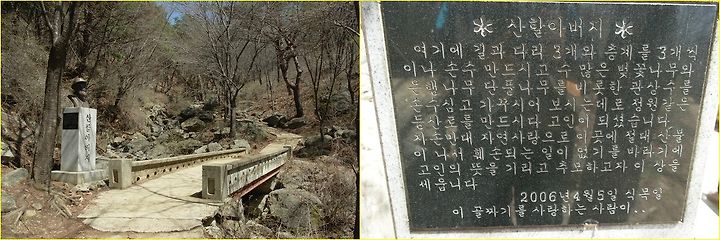 산할아버지
산할아버지
여기에 길과 다리 3개와 층계를 3개씩
이나 손수 만드시고 수 많은 벚꽃나무와
은행나무 단풍나무를 비롯한 관상수를
손수심고 가꾸시어 보시는데로 정원같은
등산로를 만드시다 고인이 되셨습니다
자손만대 자연사랑으로 이곳에 절대 산불
이 나서 훼손되는 일이 없기를 바라기에
고인의 뜻을 기리고 추모하고자 이 상을
세웁니다
2006년4월5일 식목일
이 골짜기를 사랑하는 사람이..